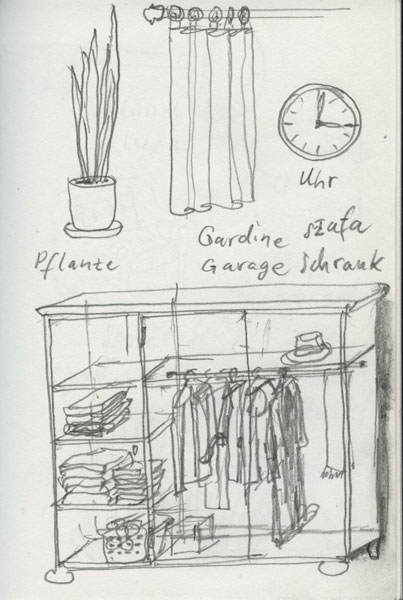 Uhr
Gardine szafa
Pflanze
Garage Schrank